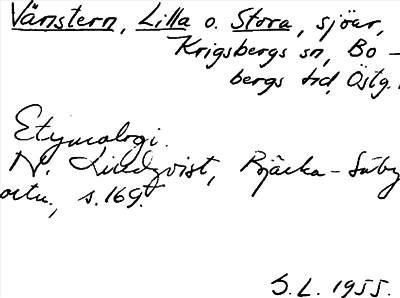 Vänstern, Lilla o. Stora, sjöar,
Krigsbergs sn, Bo-
bergs hd, Östg.
Etymologi.
N. Lindqvist, Bjärka-Säby
ortn., s. 169.
S.L. 1955.